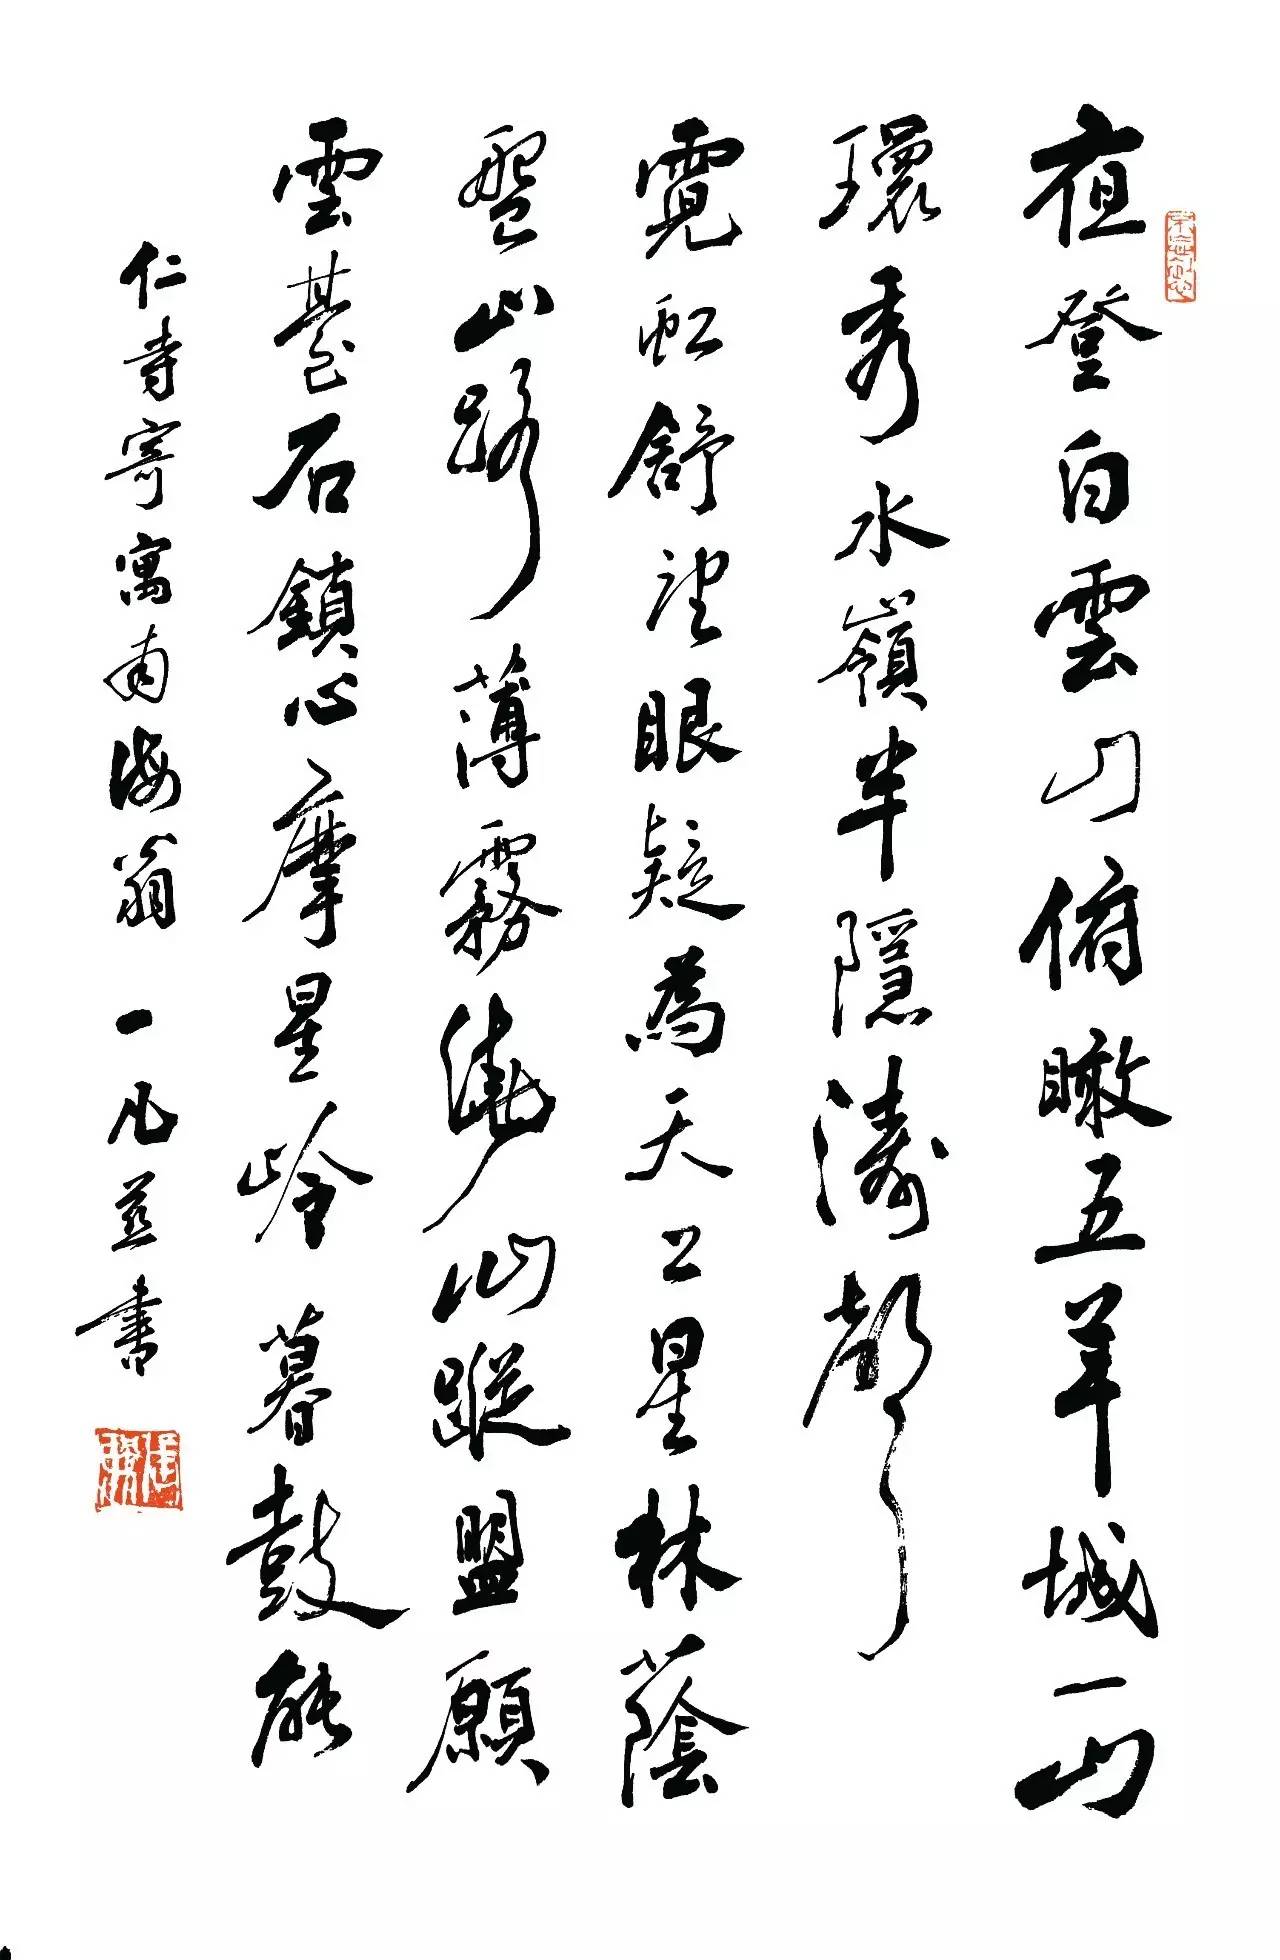 夜登白雲山俯瞰五羊城一山
環秀水嶺半隱濤聲
霓虹舒望眼疑為天上星林蔭
盤山路薄霧繞仙蹤盟願
雲臺石鎖心摩星岭暮鼓能
仁寺寄寓南海翁 一凡並書